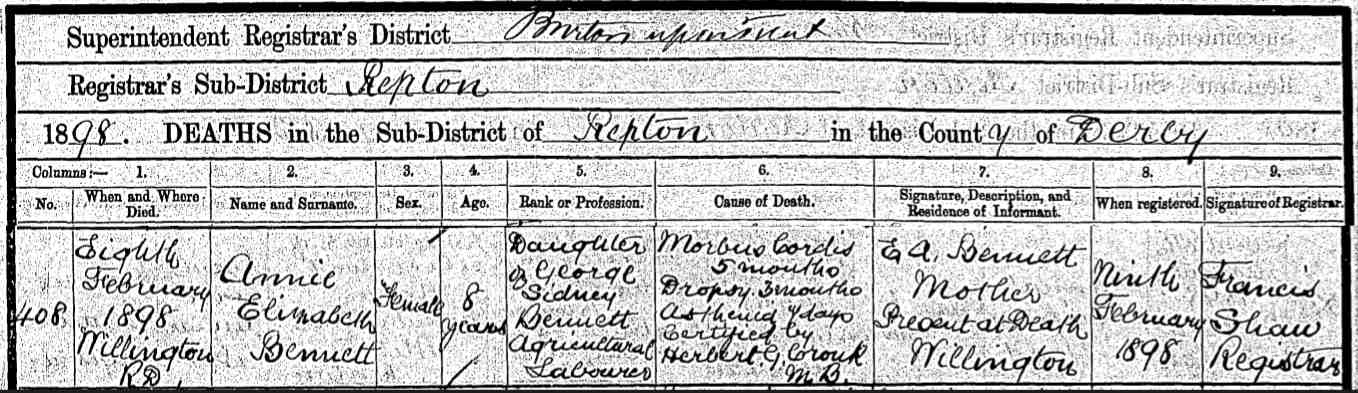 Superintendent Registrar's District Burton upon Trent
Registrar's Sub-District Repton
1898. DEATHS in the Sub-District of Repton in the County of Derby
Columns:— 1. 2. 3. 4. 5. 6. 7. 8. 9.
No. When and Where Died. Name and Surname. Sex. Age. Rank or Profession. Cause of Death. Signature, Description, and Residence of Informant. When registered. Signature of Registrar.
408
Eighth
February
1898
Willington
R D
Annie
Elizabeth
Bennett
Female
8
years
Daughter
of George
Sidney
Bennett
Agricultural
Labourer
Morbus Cordis
5 months
Dropsy 3 months
Asthenia 4 days
Certified by
Herbert G.
M.B.
E A. Bennett
Mother
Present at Death
Willington
Ninth
February
1898
Francis
Shaw
Registrar